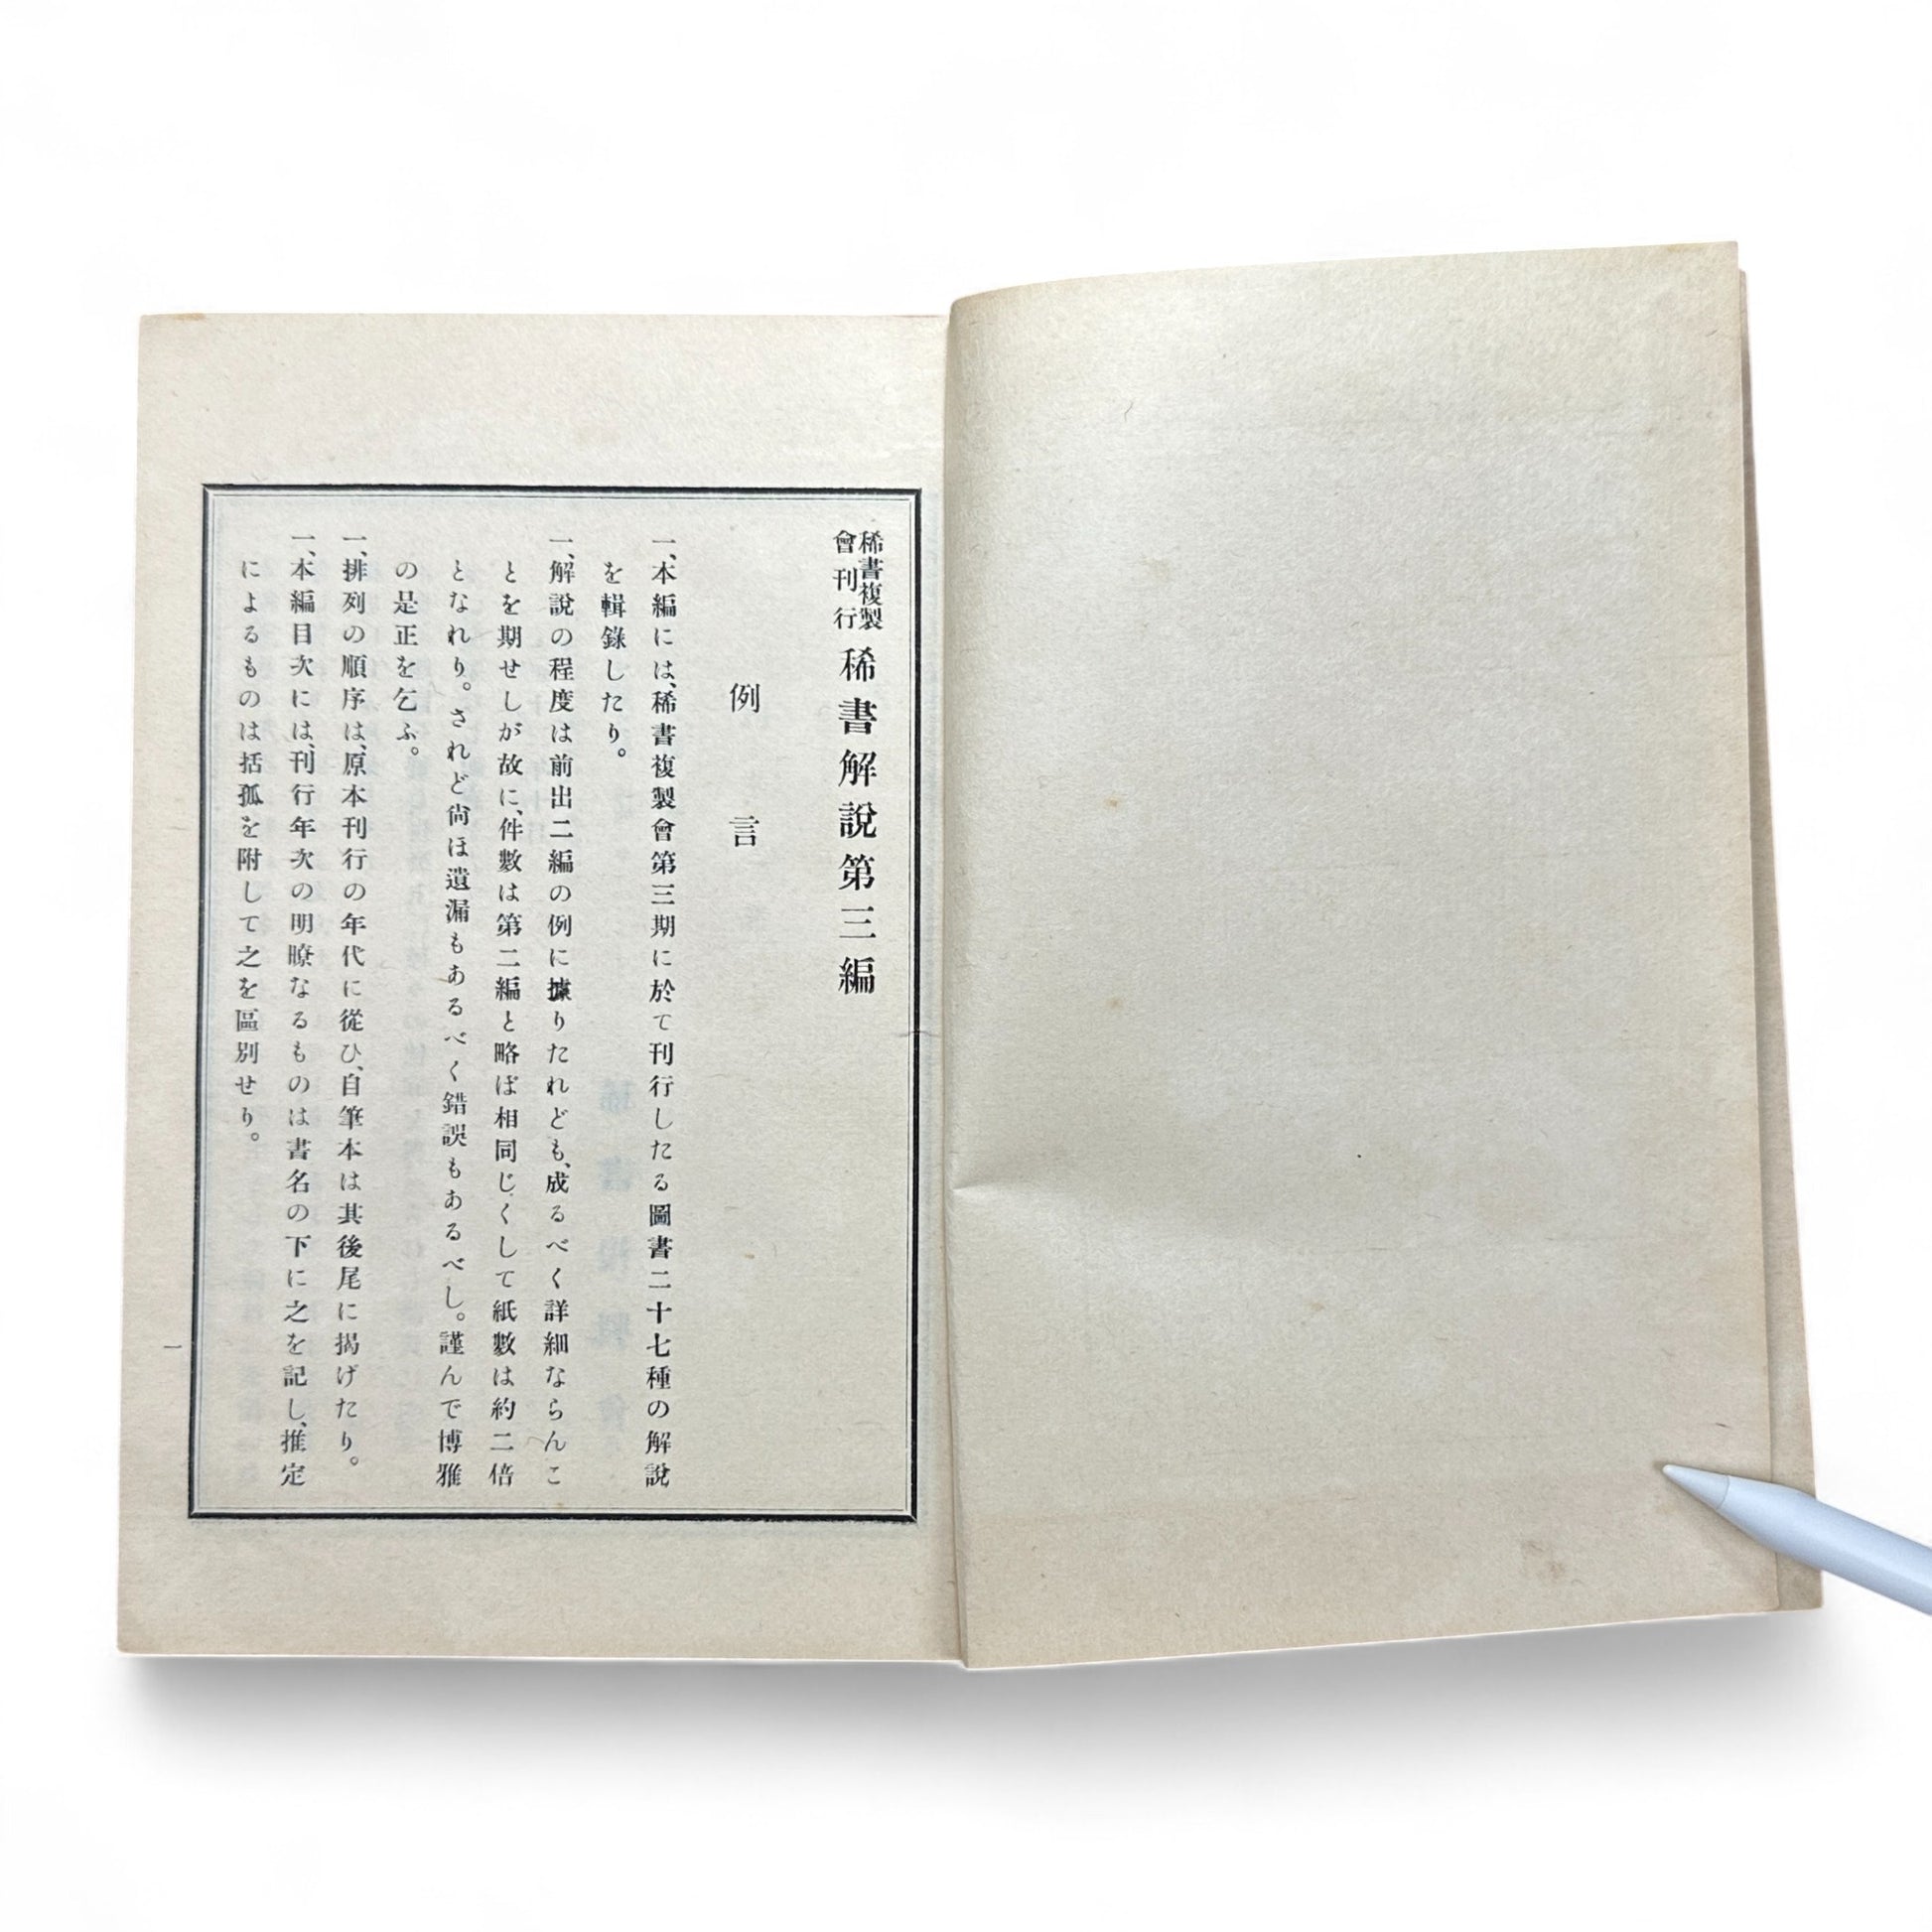 稀書複製
會刊行
稀書解說第三編
例言
一、本編には、稀書複製會第三期に於て刊行したる圖書二十七種の解說
を輯錄したり。
一、解說の程度は前出二編の例に據りたれども、成るべく詳細ならんこ
とを期せしが故に、件數は第二編と略ぼ相同じくして紙數は約二倍
となれり。されど尙ほ遺漏もあるべく錯誤もあるべし。謹んで博雅
の是正を乞ふ。
一、排列の順序は、原本刊行の年代に從ひ、自筆本は其後尾に揭げたり。
一、本編目次には、刊行年次の明瞭なるものは書名の下に之を記し、推定
によるものは括孤を附して之を區別せり。
一